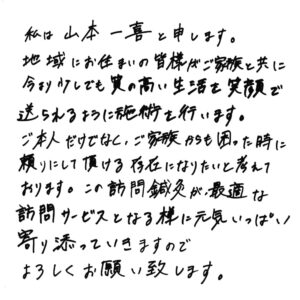 私は山本一喜と申します。
地域にお住まいの皆様がご家族と共に
今より少しでも質の高い生活を笑顔で
送られるように施術を行います。
ご本人だけでなく、ご家族からも困った時に
頼りにして頂ける存在になりたいと考えて
おります。この訪問鍼灸が最適な
訪問サービスとなる様に元気いっぱい
寄り添っていきますので
よろしくお願い致します。